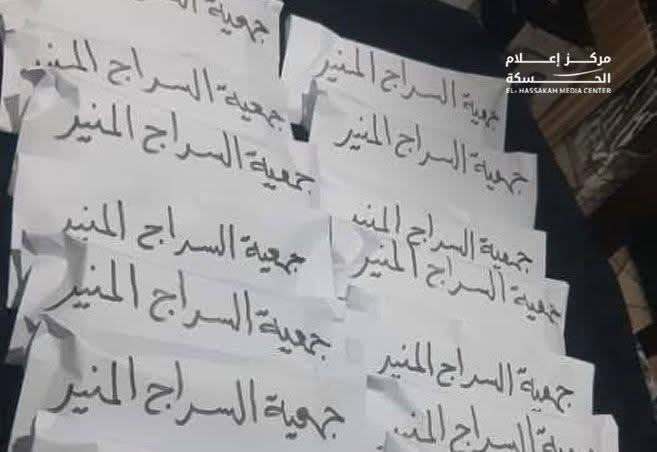 مركز إعلام
الحسكة
EL- HASSAKAH MEDIA CENTER
جمعية
جمعية السراج المنير
جمعية السراج المنير
جمعية السراج المنير
جمعية السراج المنير
جمعية السراج المنير
جمعية السراج المنير
جمعية السراج المنير
جمعية السراج المنير
جمعية السراج المنير
جمعية السراج المنير
جمعية السراج المنير
جمعية السراج المنير